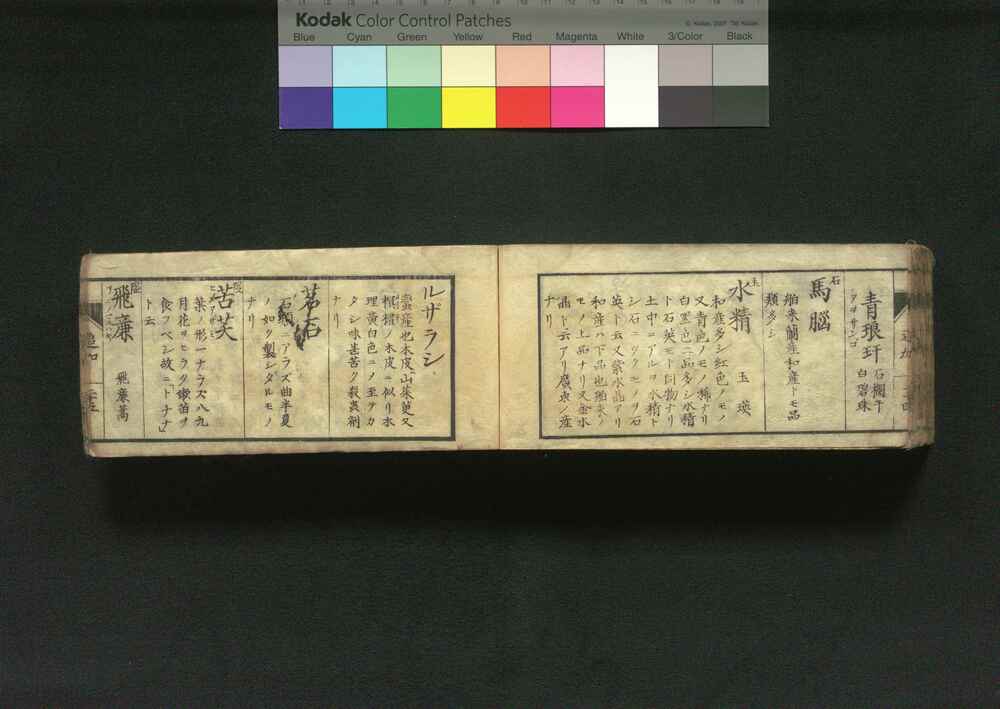 Kodak Color Control Patches
Blue Cyan Green Yellow Red Magenta White 3/Color Black
青琅玕
石欄干
白碧珠
石
馬脳
舶来蘭産和産トモ品
類多シ
玉
水精
玉瑛
和産多シ紅色ノモノ
又青色ノモノ稀ナリ
白黒色ニ品多シ水精
ト石英モト同物ナリ
土中ニアルヲ水精ト
シ石ニツクモノヲ石
英ト云又紫水晶アリ
和産ハ下品也舶来ノ
モノ上品ナリ又金水
晶ト云アリ廣東ノ産
ナリ
ルザラシ
蛮産也木皮山茱萸又
椢櫃ノ木皮ニ似リ水
理黄白色ニノ至テカ
タシ味甚苦ク殺虫剤
ナリ
石
ニアラズ曲半夏
ノ如ク製シタルモノ
ナリ
苦芺
葉ノ形一ナラズ八九
月花ヲヒラク嫩苗ヲ
食フベシ故ニトナナ
ト云
飛廉
飛廉蒿